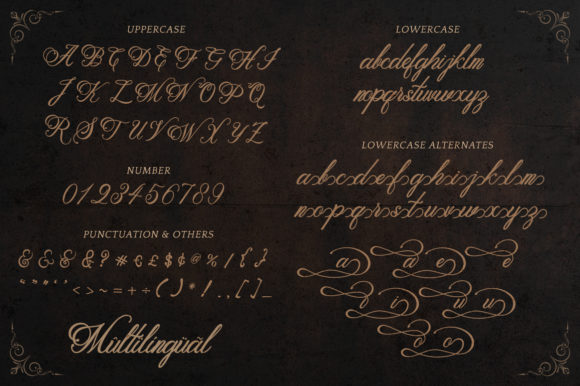 UPPERCASE
A B C D E F G H I
J K L M N O P Q
R S T U V W X Y Z
NUMBER
0 1 2 3 4 5 6 7 8 9
PUNCTUATION & OTHERS
& & & & ? # € £ $ ¢ @ % / { }
< > ~ = + ÷ ( ) * ! . , [ ] _
Multilingüàl
LOWERCASE
abcdefghijklm
nopqrstuvwxyz
LOWERCASE ALTERNATES
abcdefghijklm
nopqrstuvwxyz
a e
i u